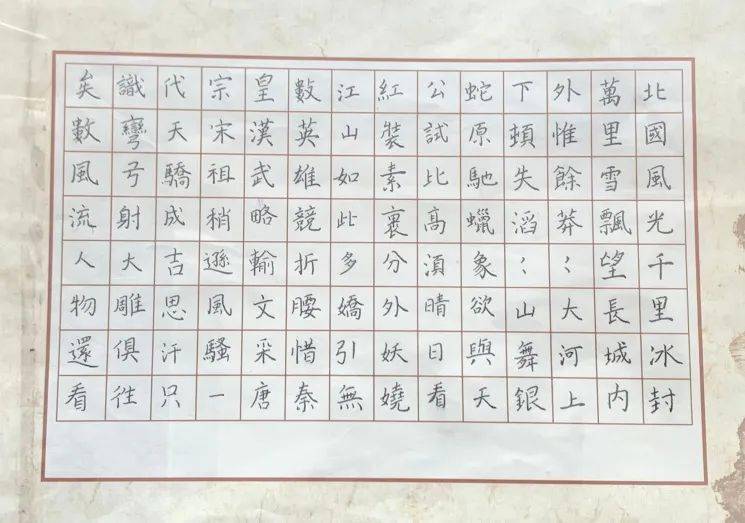 北國風光千里冰封
萬里雪飄望長城内
外惟餘莽〻大河上
下頓失滔〻山舞銀
蛇原馳蠟象欲與天
公試比高湏晴日看
紅裝素裹分外妖嬈
江山如此多嬌引無
數英雄競折腰惜秦
皇漢武略輸文采唐
宗宋祖稍遜風騷一
代天驕成吉思汗只
識彎弓射大雕俱徃
矣數風流人物還看